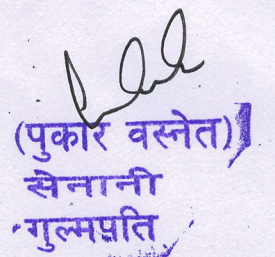 (पुकार वस्नेत)
सेनानी
गुल्मपति